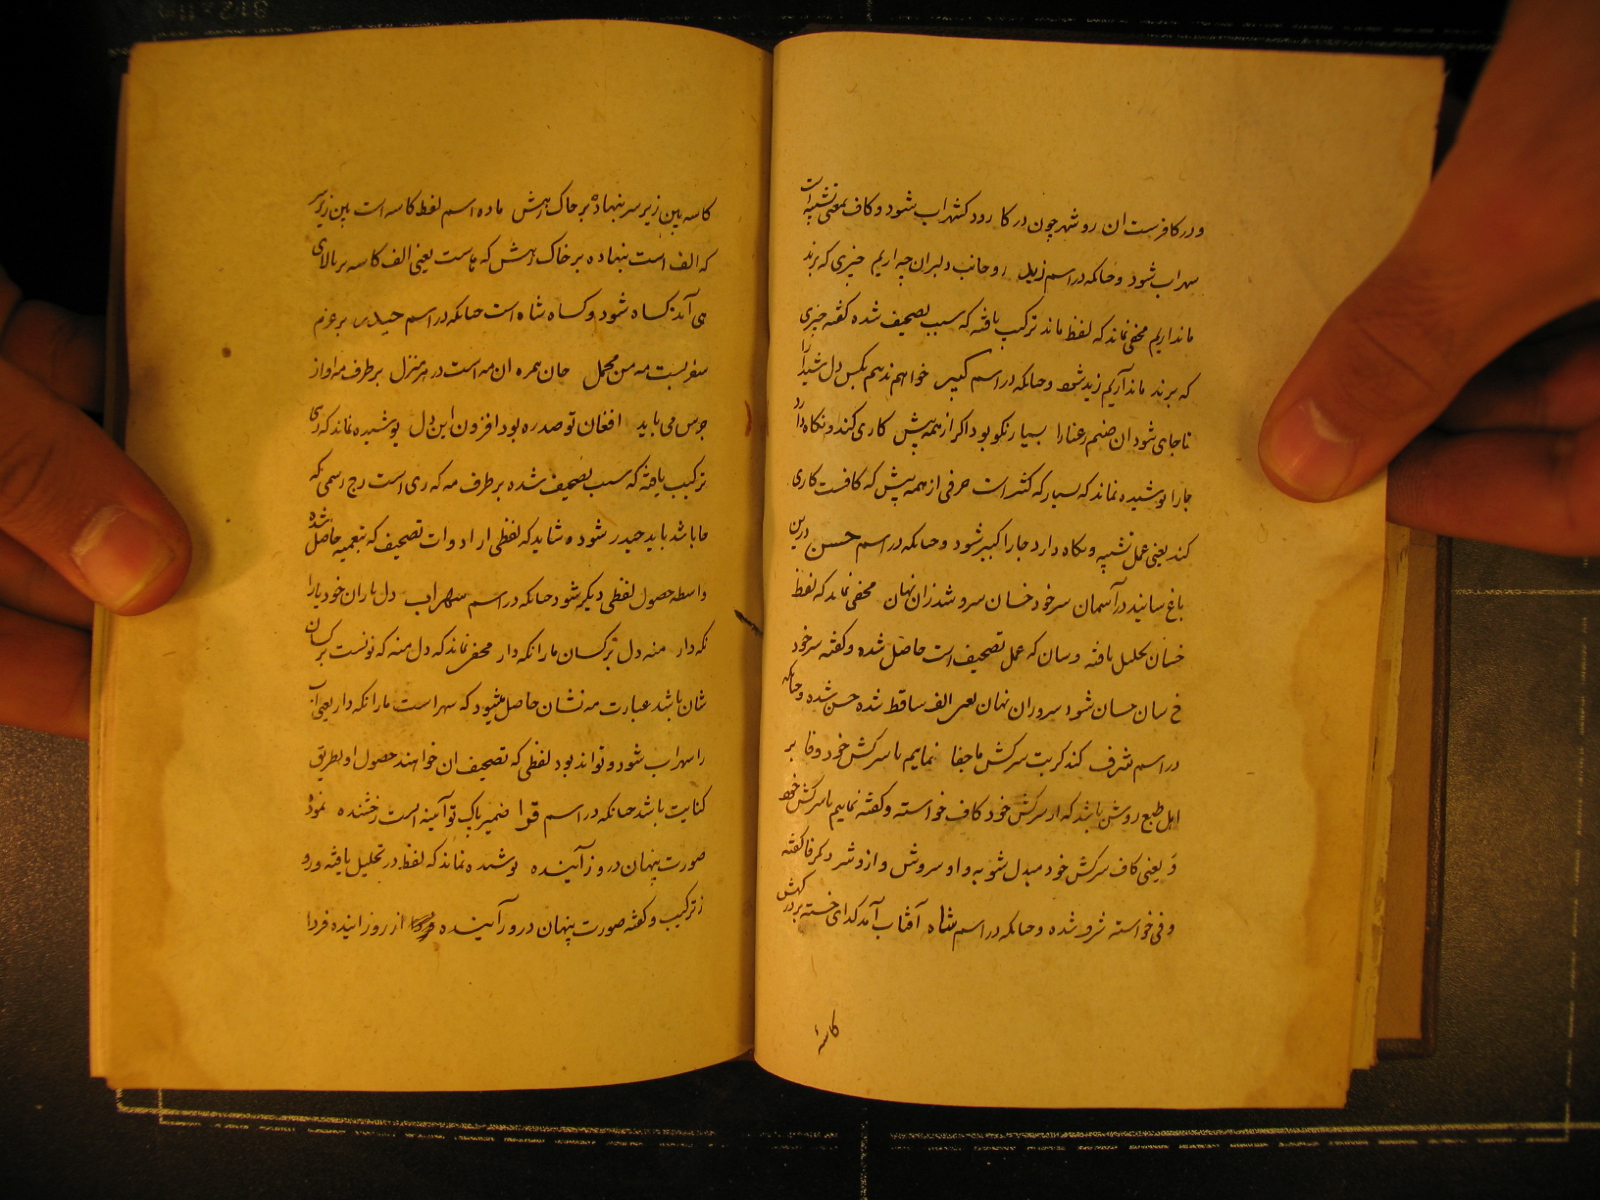 ودر کافرست ان روشهر چون در کا رود کشهراب شود و کاف بمعنی تشبیه است
سهراب شود و حانکه در اسم زید روحانب دلبران چه اریم خبری که برند
مانداریم مخفی نماند که لفظ ماند ترکیب یافته که سبب تصحیف شده کفته خبری
که برند ماند آریم زید شود و حانکه در اسم کبیر خواهم ندهم بکس دل شیدا را
تا جای شود ان صنم رعنا را بسیار نکو بود اکر از همه پیش کاری کند و نکاه دارد
جا را پوشیده نماند که بسیار که کثیر است حرفی از همه پیش که کافست کاری
کند یعنی عمل تشبیه و نکاه دارد جا را کبیر شود و حانکه در اسم حسن درین
باغ سانید در آسمان سر خود خسان سرو شد زان نهان مخفی نماند که لفظ
خسان تحلیل یافته و سان که عمل تصحیف است حاصل شده و کفته سر خود
خ سان حسان شود سرو ران نهان یعنی الف ساقط شده حسن شده و حانکه
در اسم شرف کند کر بت سرکش ما جفا نماییم با سرکش خود وفا بر
اهل طبع روشن باشد که از سرکش خود کاف خواسته و کفته نماییم با سرکش خود
و یعنی کاف سرکش خود مبدل شو به واو سروش و از و شر دکر فا کفته
و فی خواسته شرو شده و حانکه در اسم شاه آفتاب آمد کدای خسته بر در کهش
کاسهٔ
کاسه بین زیر سر نهاده بر خاک رهش ماده اسم لفظ کاسه است بین زیر سر
که الف است نهاده بر خاک رهش که است یعنی الف کاسه بر بالای
هی آند کساه شود و کساه شاه است حانکه در اسم حیدر بر عزم
سفر بست مه من محمل جان همره ان مه است در هر منزل بر طرف مه اواز
جرس می باید افغان تو صد ره بود افزون این دل پوشیده نماند که ری
ترکیب یافته که سبب تصحیف شده بر طرف مه که ری است رج رسمی که
حا باشد باید حیدر شود و شاید که لفظی از ادوات تصحیف که بتعمیه حاصل شده
واسطه حصول لفظی دیکر شود حانکه در اسم سهراب دل یاران خود یارا
نکه دار منه دل بر کسان ما را نکه دار مخفی نماند که دل منه که نونست بر کسان
شان باشد عبارت مه نشان حاصل میشود که سهر است ما را نکه دار یعنی آب
را سهراب شود و تواند بود لفظی که تصحیف ان خواهند حصول او بطریق
کنایت باشد حانکه در اسم فردا ضمیر پاک تو آیینه است رخشنده نمود
صورت پنهان در و ز آینده پوشیده نماند که لفظ در تحلیل یافته و رو
ز ترکیب و کفته صورت پنهان در و ر آینده از روز اینده فردا